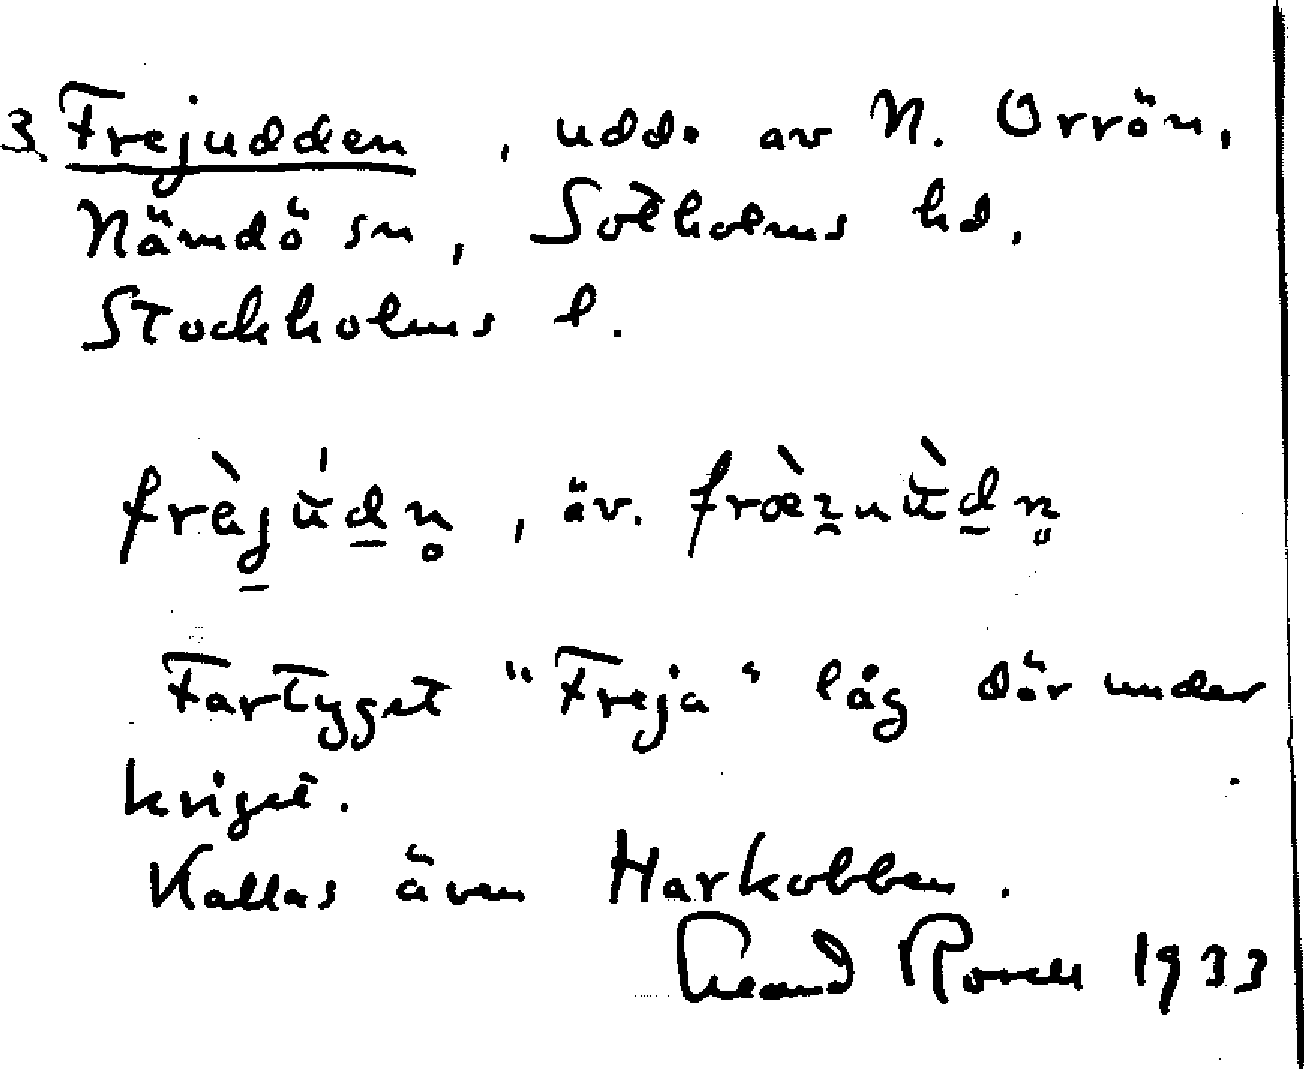 3. Frejudden, udde av N. Orrön,
Nämdö sn, Sotholms hd,
Stockholms l.
frèjúdn̥, äv. fræ̀znùdn̥
Fartyget "Freja" låg där under
kriget.
Kallas även Harkobben.
1933